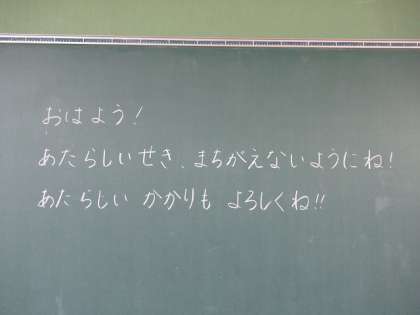 おはよう!
あたらしいせき、まちがえないようにね!
あたらしい かかりも よろしくね!!